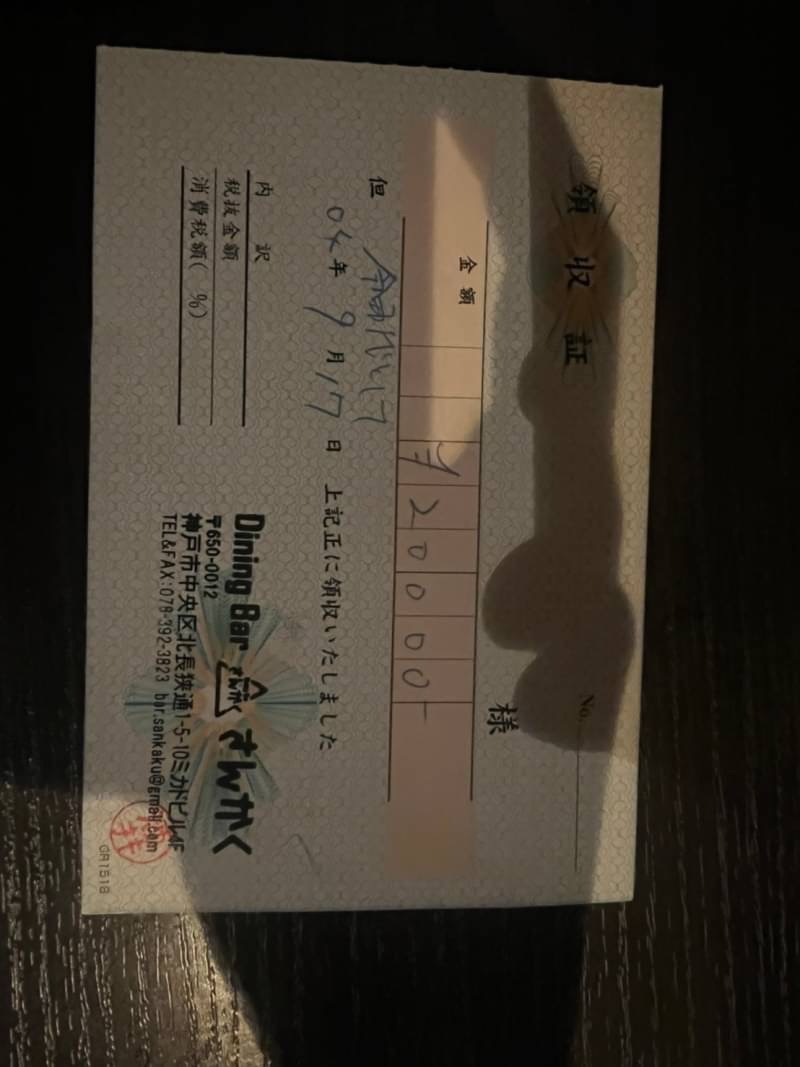 領収証
No.
様
金額
¥20000-
但 令西代として
04年9月17日 上記正に領収いたしました
内訳
税抜金額
消費税額( %)
Dining Bar さんかく さんかく
〒650-0012
神戸市中央区北長狭通1-5-10ミカドビル4F
TEL&FAX:078-392-3823 bar.sankaku@gmail.com
GR1518